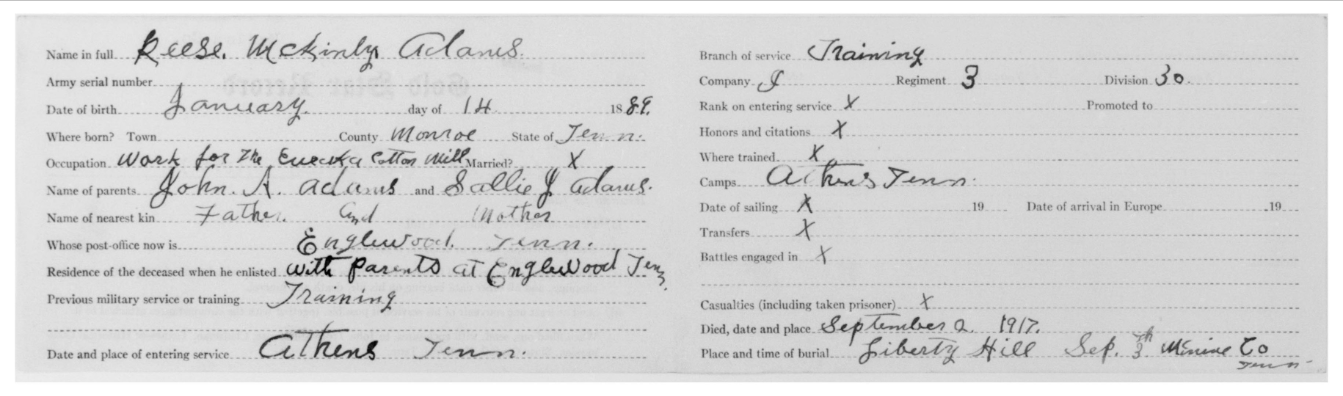 Name in full Reese Mckinly Adams.
Army serial number
Date of birth January day of 14 1889.
Where born? Town County Monroe State of Tenn.
Occupation Work for The Eureka Cotton Mill Married? X
Name of parents John. A. Adams and Sallie J Adams.
Name of nearest kin Father. and Mother
Whose post-office now is Englewood. Tenn.
Residence of the deceased when he enlisted with Parents at Englewood Tenn.
Previous military service or training Training
Date and place of entering service Athens Tenn.
Branch of service Training
Company I Regiment 3 Division 30.
Rank on entering service X Promoted to
Honors and citations X
Where trained X
Camps Athens Tenn.
Date of sailing X 19 Date of arrival in Europe 19
Transfers X
Battles engaged in X
Casualties (including taken prisoner) X
Died, date and place September 2. 1917.
Place and time of burial Liberty Hill Sep. 3th Co
Tenn